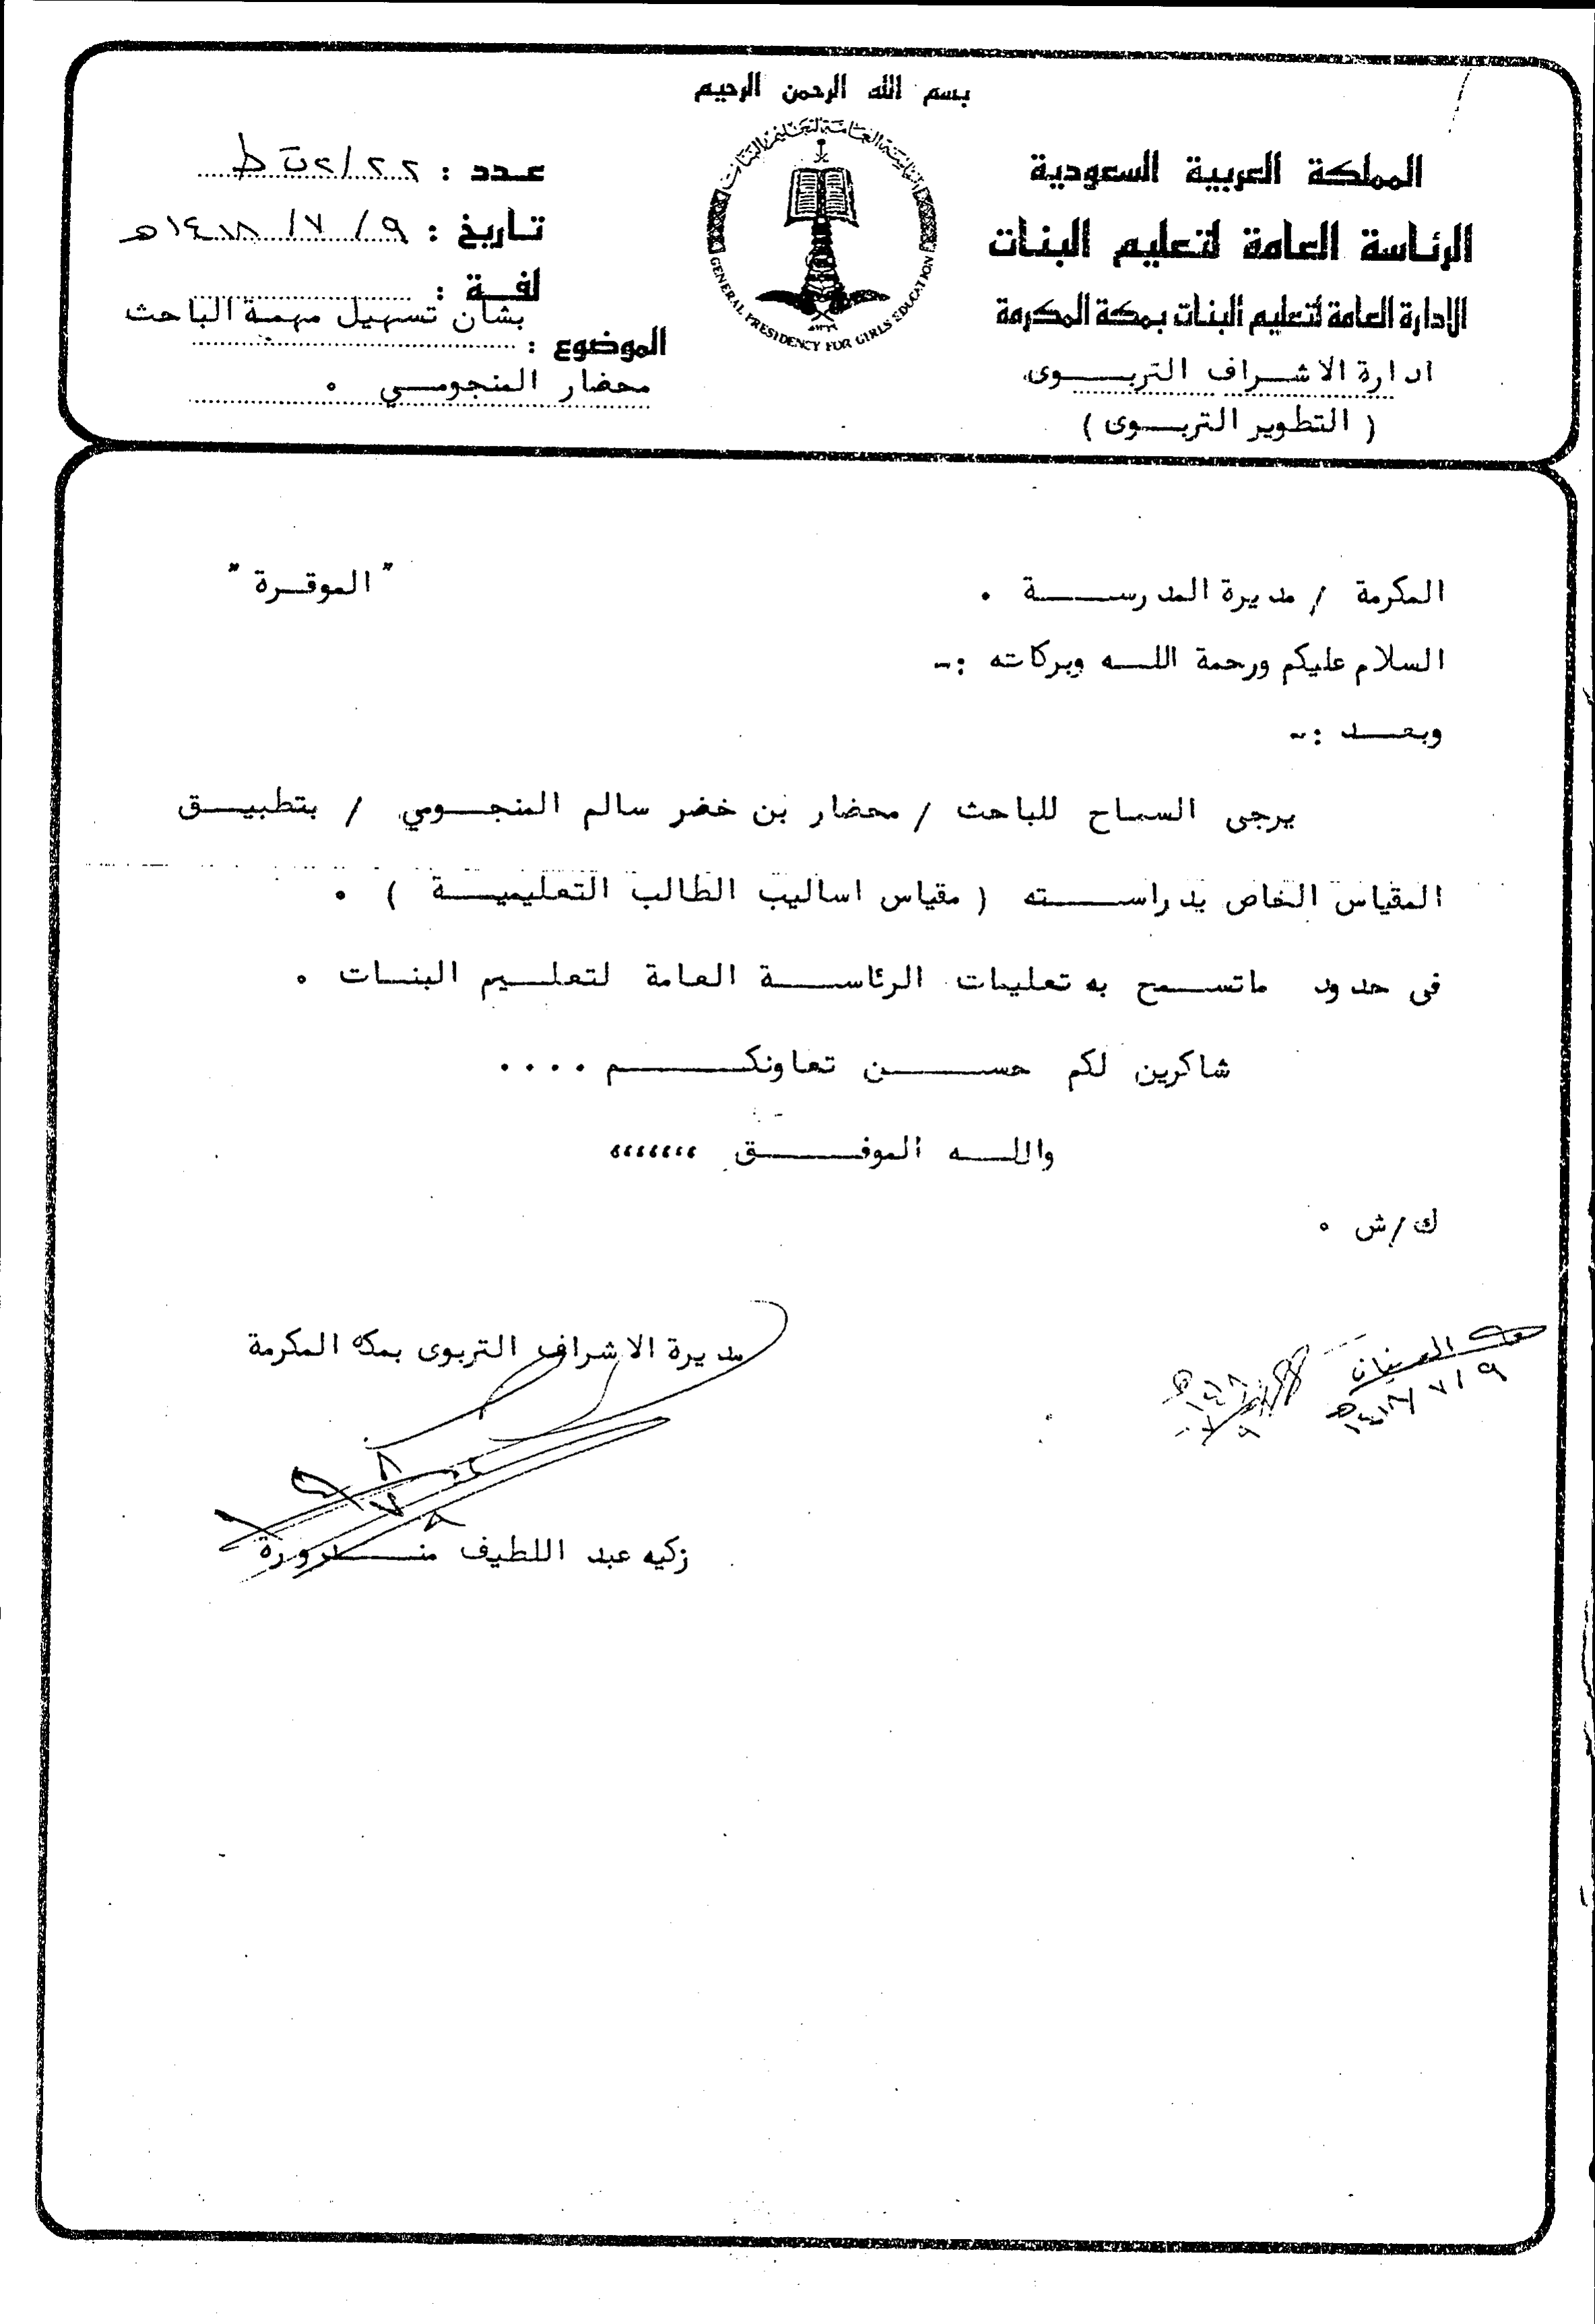 بسم الله الرحمن الرحيم
المملكة العربية السعودية
الرئاسة العامة لتعليم البنات
الادارة العامة لتعليم البنات بمكة المكرمة
ادارة الاشراف التربوى
( التطوير التربوى )
الرئاسة العامة لتعليم البنات
GENERAL PRESIDENCY FOR GIRLS EDUCATION
عدد :
تاريخ : ٩ / ٧ / ١٤١٨هـ
لفة :
الموضوع : بشأن تسهيل مهمة الباحث
محضار المنجومي .
المكرمة / مديرة المدرسة . " الموقرة "
السلام عليكم ورحمة الله وبركاته :-
وبعد :-
يرجى السماح للباحث / محضار بن خضر سالم المنجومي / بتطبيق
المقياس الخاص بدراسته ( مقياس اساليب الطالب التعليمية ) .
فى حدود ماتسمح به تعليمات الرئاسة العامة لتعليم البنات .
شاكرين لكم حسن تعاونكم ....
والله الموفق ،،،،،،،
ك/ش .
مديرة الاشراف التربوى بمكه المكرمة
زكيه عبد اللطيف مندورة
٩/٧/١٤١٨هـ